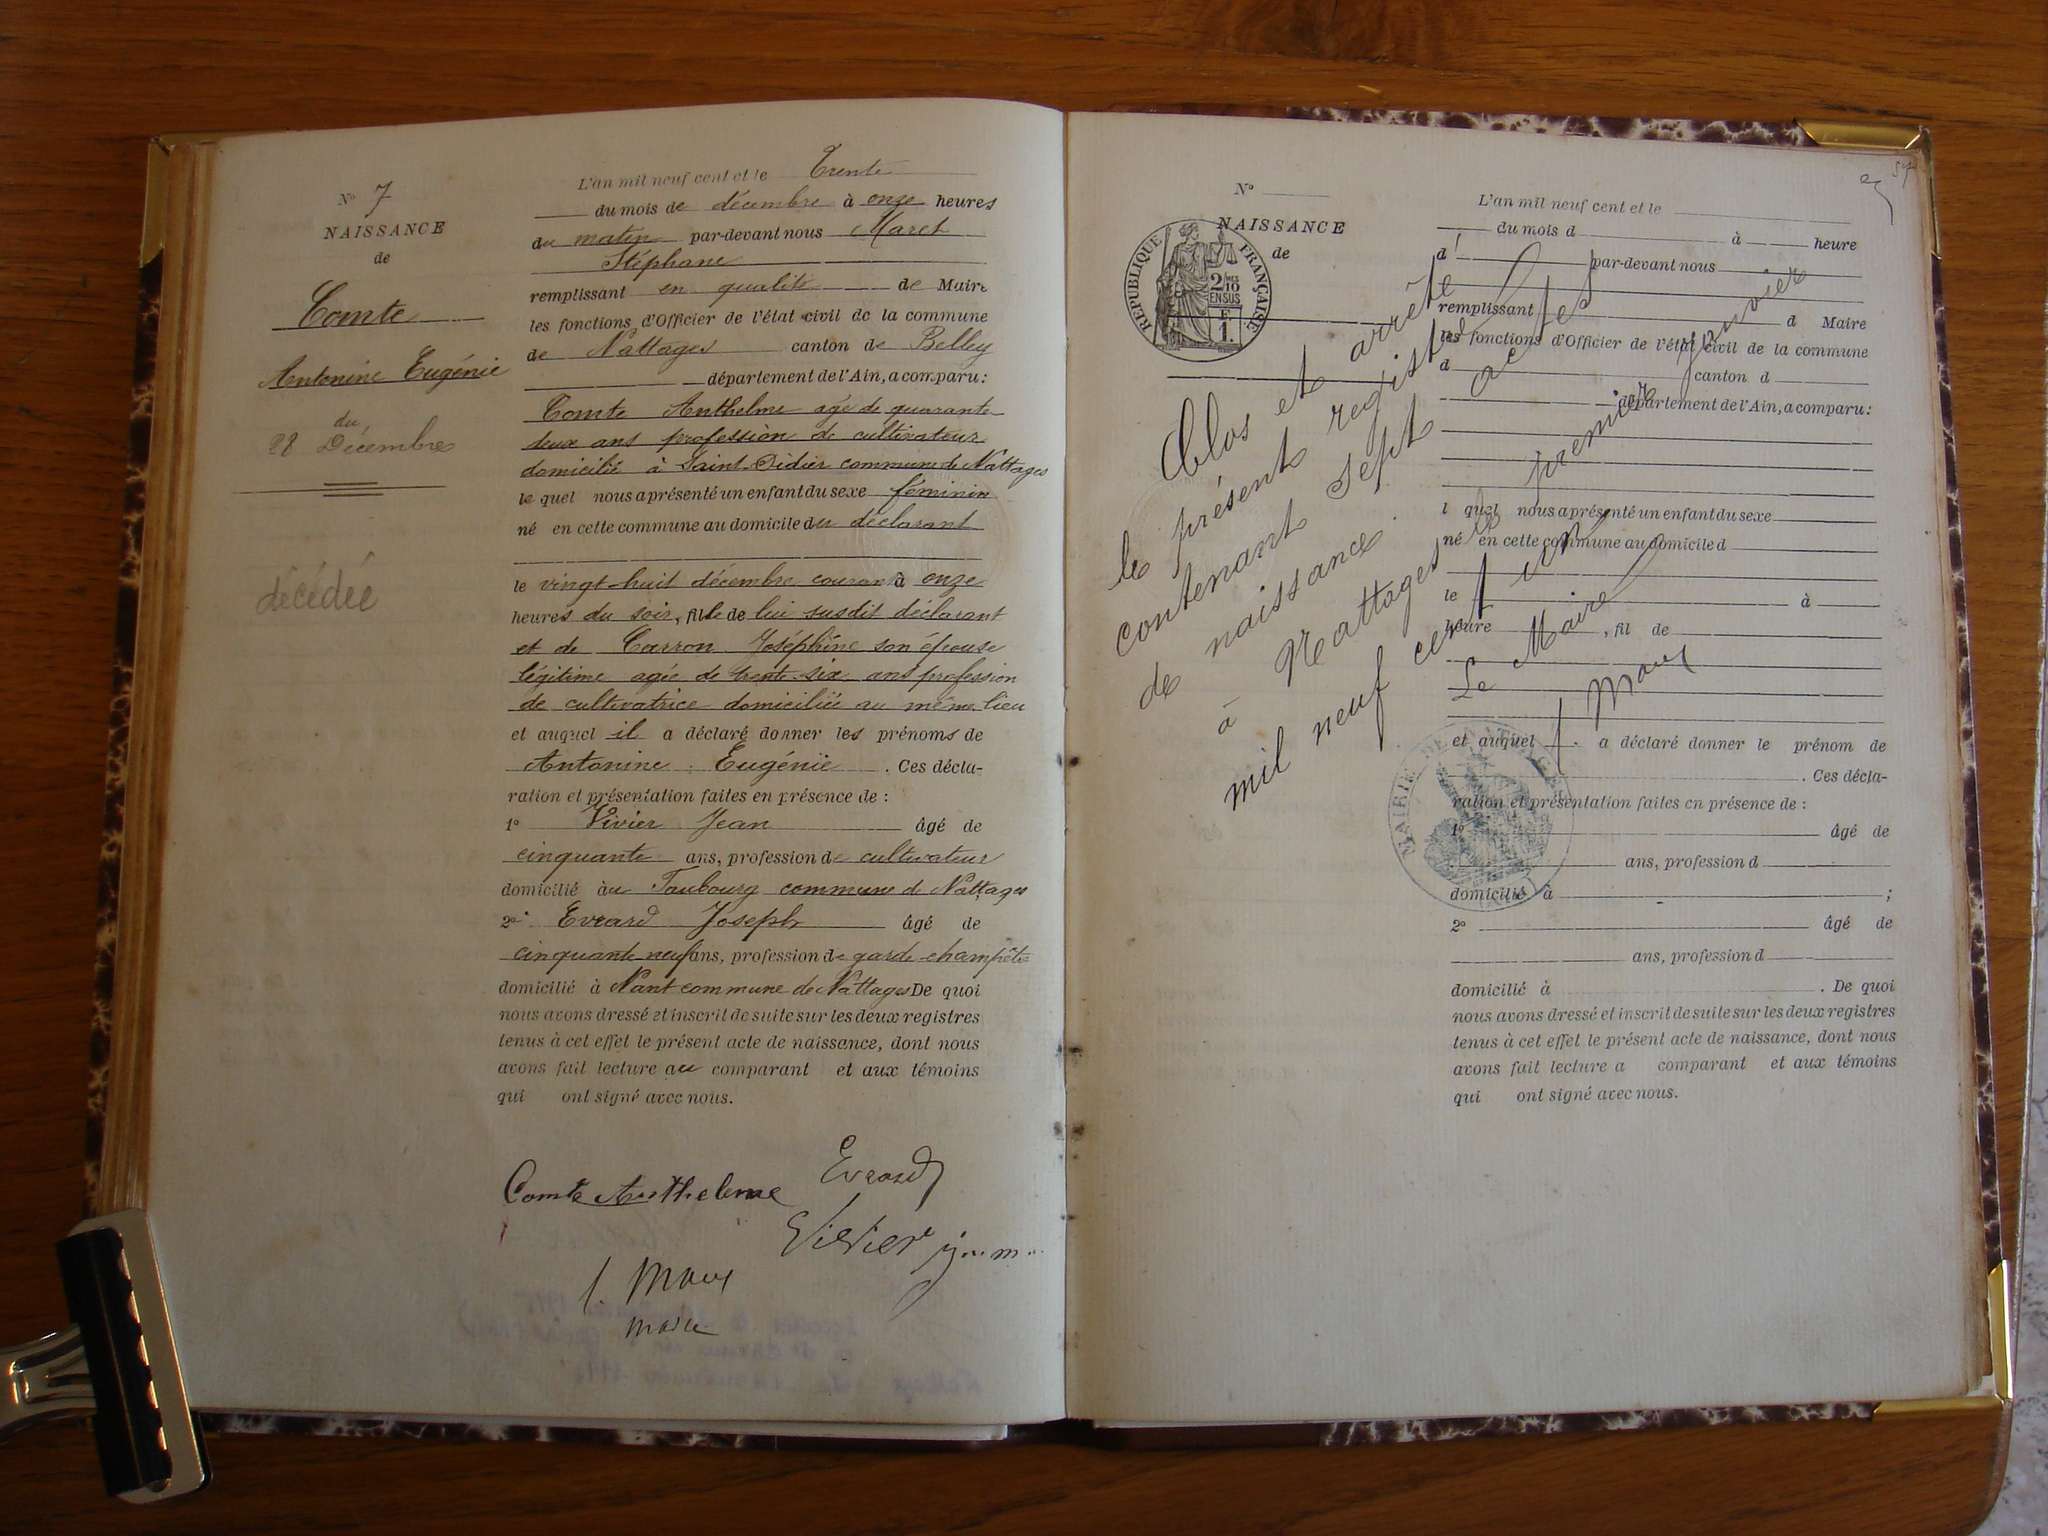 N° 7
NAISSANCE
de
Comte
Antonine Eugénie
du
28 Décembre
décédée
L'an mil neuf cent et le Trente
du mois de décembre à onze heures
du matin par-devant nous Maret
Stéphane
remplissant en qualité de Maire
les fonctions d'Officier de l'état civil de la commune
de Nattages canton de Belley
département de l'Ain, a comparu :
Comte Anthelme agé de quarante
deux ans profession de cultivateur
domicilié à Saint-Didier commune de Nattages
le quel nous a présenté un enfant du sexe féminin
né en cette commune au domicile du déclarant
le vingt-huit décembre courant à onze
heures du soir, fille de lui susdit déclarant
et de Carron Joséphine son épouse
légitime agée de trente-six ans profession
de cultivatrice domiciliée au même lieu
et auquel il a déclaré donner les prénoms de
Antonine Eugénie . Ces décla-
ration et présentation faites en présence de :
1° Vivier Jean âgé de
cinquante ans, profession de cultivateur
domicilié au Faubourg commune de Nattages
2° Evrard Joseph âgé de
cinquante neuf ans, profession de garde-champêtre
domicilié à Nant commune de Nattages De quoi
nous avons dressé et inscrit de suite sur les deux registres
tenus à cet effet le présent acte de naissance, dont nous
avons fait lecture au comparant et aux témoins
qui ont signé avec nous.
Comte Anthelme
Evrard
Vivier
maire
57
N°
NAISSANCE
de
REPUBLIQUE FRANÇAISE
2/10
EN SUS
1.
Clos et arrêté
le présent registre
contenant sept actes
de naissance.
à Nattages le premier janvier
mil neuf cent un
Le Maire
MAIRIE DE NATTAGES
L'an mil neuf cent et le
du mois d à heure
d par-devant nous
remplissant d Maire
les fonctions d'Officier de l'état civil de la commune
d canton d
département de l'Ain, a comparu :
l quel nous a présenté un enfant du sexe
né en cette commune au domicile d
le à
heure , fil de
et auquel a déclaré donner le prénom de
. Ces décla-
ration et présentation faites en présence de :
1° âgé de
ans, profession d
domicilié à ;
2° âgé de
ans, profession d
domicilié à . De quoi
nous avons dressé et inscrit de suite sur les deux registres
tenus à cet effet le présent acte de naissance, dont nous
avons fait lecture a comparant et aux témoins
qui ont signé avec nous.